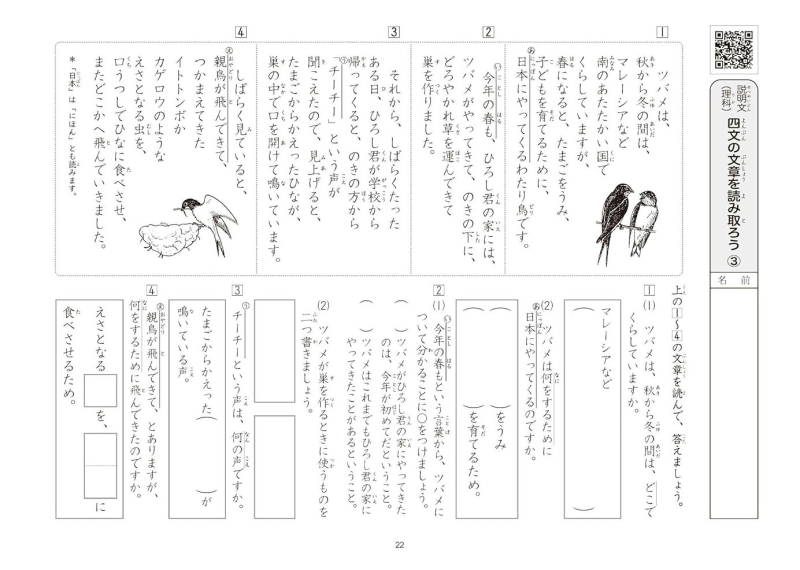 説明文
(理科)
四文の文章を読み取ろう③
名前
1
ツバメは、
秋から冬の間は、
マレーシアなど
南のあたたかい国で
くらしていますが、
春になると、たまごをうみ、
子どもを育てるために、
あ日本にやってくるわたり鳥です。
2
い今年の春も、ひろし君の家には、
ツバメがやってきて、のきの下に、
どろやかれ草を運んできて
巣を作りました。
3
それから、しばらくたった
ある日、ひろし君が学校から
帰ってくると、のきの方から
う「チーチー」という声が
聞こえたので、見上げると、
たまごからかえったひなが、
巣の中で口を開けて鳴いています。
4
しばらく見ていると、
え親鳥が飛んできて、
つかまえてきた
イトトンボか
カゲロウのような
えさとなる虫を、
口うつしでひなに食べさせ、
またどこかへ飛んでいきました。
＊「日本」は「にほん」とも読みます。
上の1～4の文章を読んで、答えましょう。
1
(1) ツバメは、秋から冬の間は、どこで
くらしていますか。
マレーシアなど
(　　　)
(2) ツバメは何をするために
あ日本にやってくるのですか。
(　　　)をうみ
(　　　)を育てるため。
2
(1) い今年の春もという言葉から、ツバメに
ついて分かることに○をつけましょう。
(　) ツバメがひろし君の家にやってきた
のは、今年が初めてだということ。
(　) ツバメはこれまでもひろし君の家に
やってきたことがあるということ。
(2) ツバメが巣を作るときに使うものを
二つ書きましょう。
3
うチーチーという声は、何の声ですか。
たまごからかえった(　　　)が
鳴いている声。
4
え親鳥が飛んできて、とありますが、
何をするために飛んできたのですか。
えさとなる□を、□□に
食べさせるため。
22